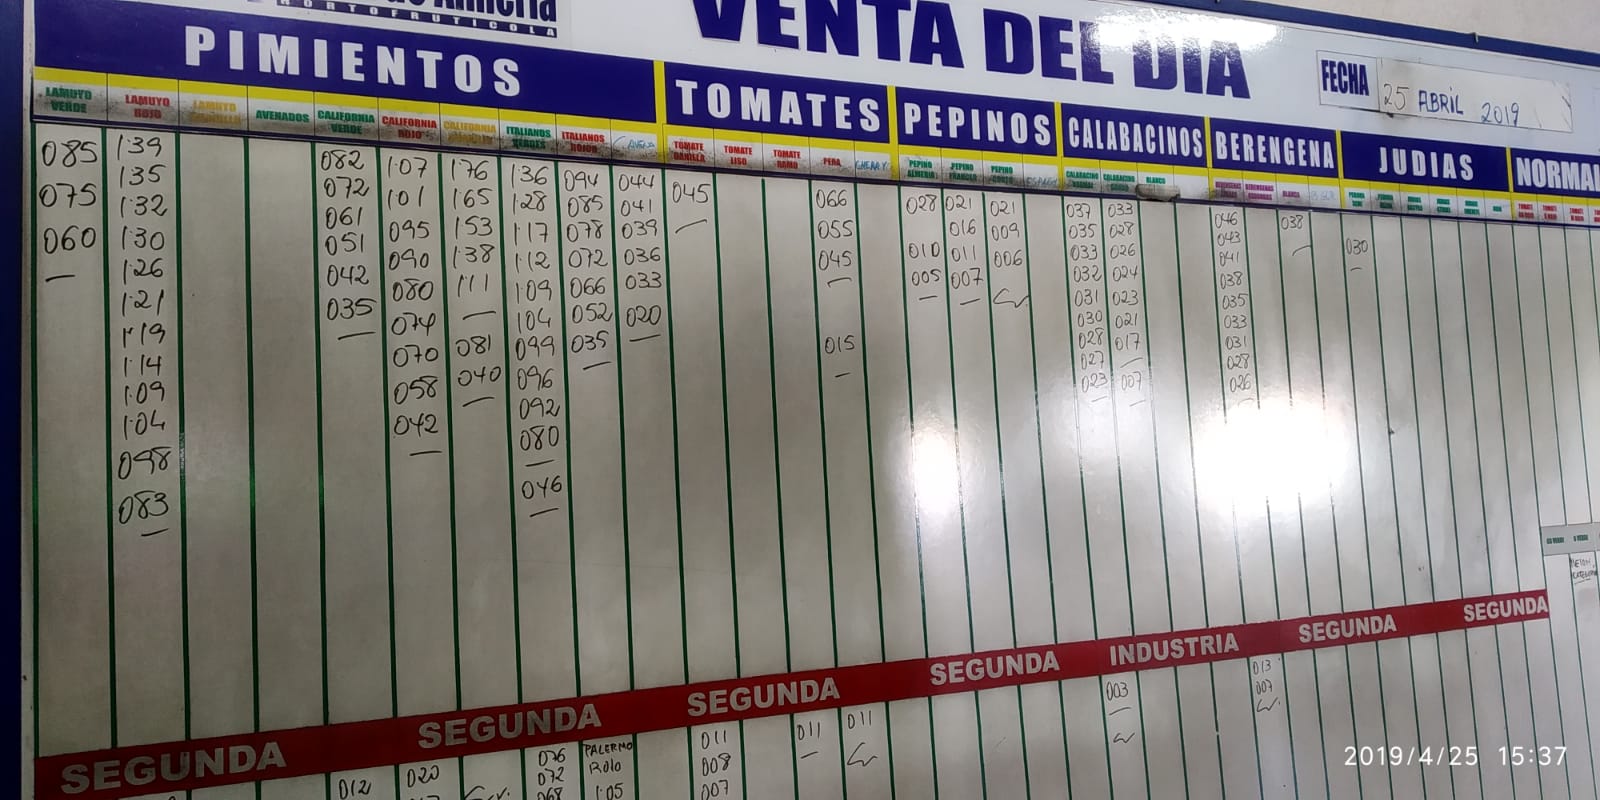 HORTOFRUTICOLA
VENTA DEL DIA
FECHA 25 ABRIL 2019
PIMIENTOS
TOMATES
PEPINOS
CALABACINOS
BERENGENA
JUDIAS
NORMAL
LAMUYO VERDE
085
075
060
LAMUYO ROJO
1·39
1·35
1·32
1·30
1·26
1·21
1·19
1·14
1·09
1·04
098
083
LAMUYO
AVENADOS
CALIFORNIA VERDE
082
072
061
051
042
035
CALIFORNIA ROJO
1·07
101
095
090
080
074
070
058
042
CALIFORNIA
176
165
153
1·38
1'11
081
040
ITALIANOS VERDES
1·36
1·28
1·17
1·12
1·09
104
099
096
092
080
046
ITALIANOS ROJOS
094
085
078
072
066
052
035
044
041
039
036
033
020
TOMATE DANIELA
045
TOMATE LISO
TOMATE RAMO
PERA
066
055
045
015
CHERRY
PEPINO ALMERIA
028
010
005
PEPINO FRANCES
021
016
011
007
PEPINO CORTO
021
009
006
CALABACINO NORMAL
037
035
033
032
031
030
028
027
023
CALABACINO GORDO
033
028
026
024
023
021
017
007
BLANCO
046
043
041
038
035
033
031
028
026
BLANCA
038
030
SEGUNDA
SEGUNDA
SEGUNDA
SEGUNDA
INDUSTRIA
SEGUNDA
SEGUNDA
012
020
076
072
068
PALERMO
ROJO
1·05
011
008
007
011
011
003
013
007
2019/4/25 15:37